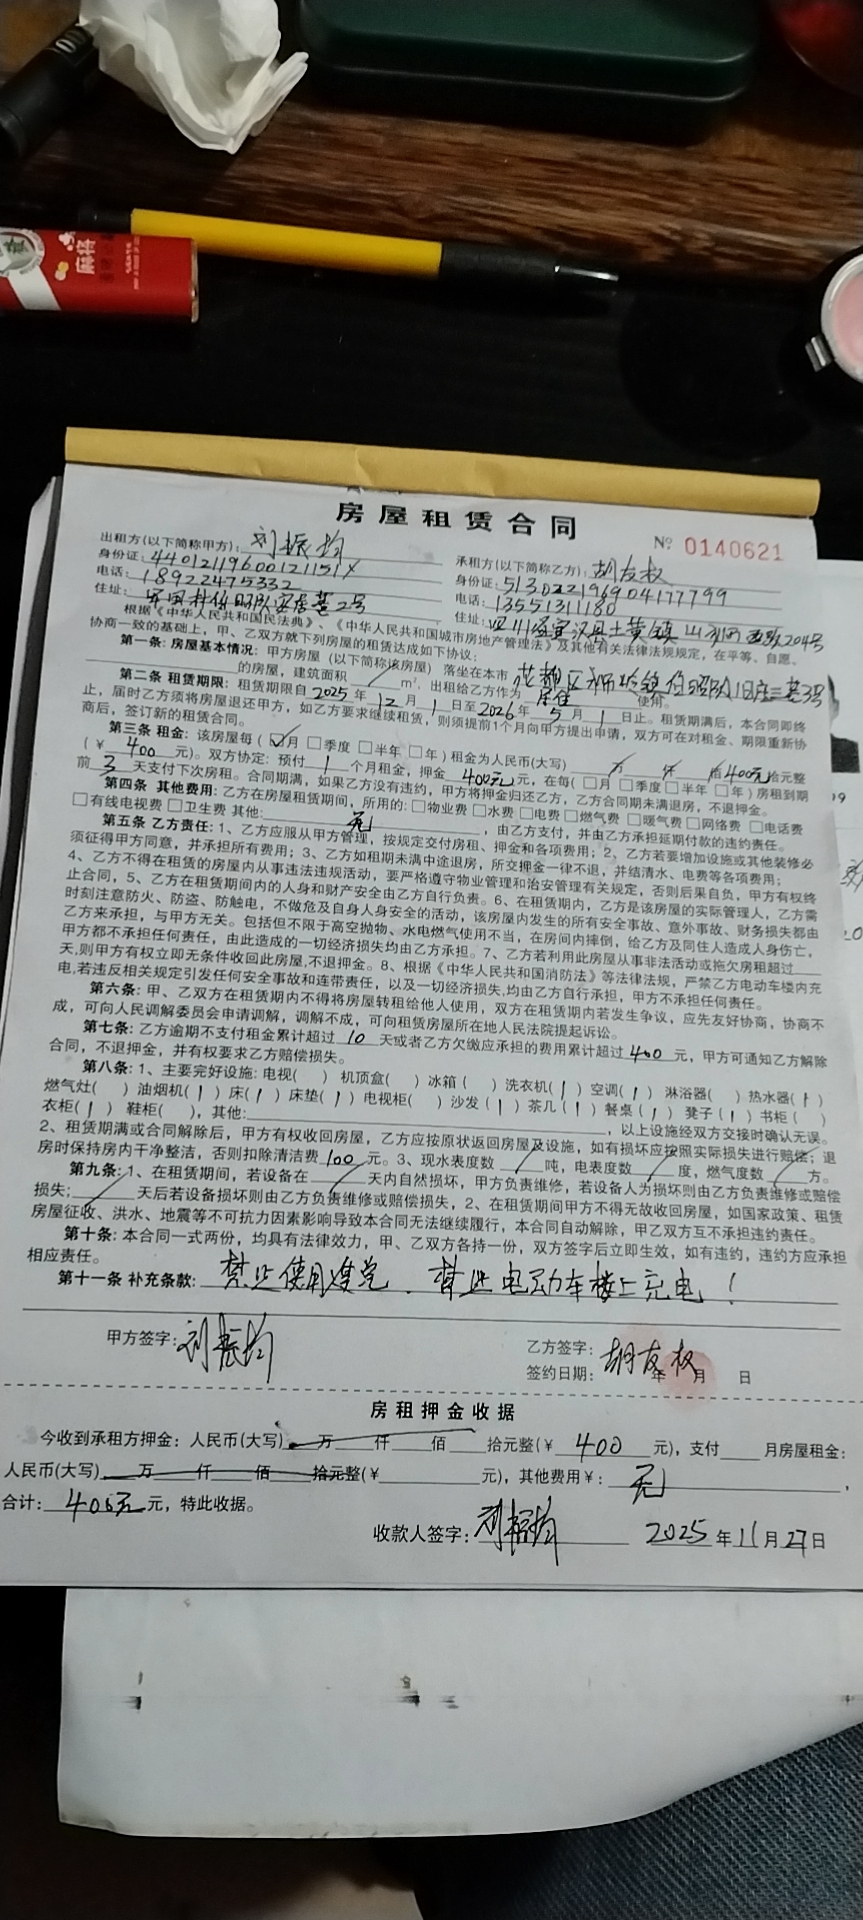 麻将
房屋租赁合同
№ 0140621
出租方(以下简称甲方): 刘振均
身份证: 44012119600121151X
电话: 18922475332
住址:
承租方(以下简称乙方): 胡友权
身份证: 513022196904177799
电话: 13551311180
住址: 四川省宣汉县土黄镇
根据《中华人民共和国民法典》、《中华人民共和国城市房地产管理法》及其他有关法律法规规定，在平等、自愿、
协商一致的基础上，甲、乙双方就下列房屋的租赁达成如下协议：
第一条: 房屋基本情况: 甲方房屋（以下简称该房屋）落坐在本市 花都区狮岭镇
的房屋，建筑面积 m²，出租给乙方作为 居住 使用。
第二条 租赁期限: 租赁期限自2025年12月1日至2026年5月1日止。租赁期满后，本合同即终
止，届时乙方须将房屋退还甲方，如乙方要求继续租赁，则须提前1个月向甲方提出申请，双方可在对租金、期限重新协
商后，签订新的租赁合同。
第三条 租金: 该房屋每（☑月 □季度 □半年 □年）租金为人民币(大写) 万 仟 佰 400元 拾元整
（￥ 400 元)。双方协定：预付 1 个月租金，押金 400元 元，在每(□月 □季度 □半年 □年）房租到期
前 3 天支付下次房租。合同期满，如果乙方没有违约，甲方将押金归还乙方，乙方合同期未满退房，不退押金。
第四条 其他费用: 乙方在房屋租赁期间，所用的: □物业费 □水费 □电费 □燃气费 □暖气费 □网络费 □电话费
□有线电视费 □卫生费 其他: 无 ，由乙方支付，并由乙方承担延期付款的违约责任。
第五条 乙方责任: 1、乙方应服从甲方管理，按规定交付房租、押金和各项费用；2、乙方若要增加设施或其他装修必
须征得甲方同意，并承担所有费用；3、乙方如租期未满中途退房，所交押金一律不退，并结清水、电费等各项费用；
4、乙方不得在租赁的房屋内从事违法违规活动，要严格遵守物业管理和治安管理有关规定，否则后果自负，甲方有权终
止合同，5、乙方在租赁期间内的人身和财产安全由乙方自行负责。6、在租赁期内，乙方是该房屋的实际管理人，乙方需
时刻注意防火、防盗、防触电，不做危及自身人身安全的活动，该房屋内发生的所有安全事故、意外事故、财务损失都由
乙方来承担，与甲方无关。包括但不限于高空抛物、水电燃气使用不当，在房间内摔倒，给乙方及同住人造成人身伤亡，
甲方都不承担任何责任，由此造成的一切经济损失均由乙方承担。7、乙方若利用此房屋从事非法活动或拖欠房租超过
天,则甲方有权立即无条件收回此房屋,不退押金。8、根据《中华人民共和国消防法》等法律法规，严禁乙方电动车楼内充
电,若违反相关规定引发任何安全事故和连带责任，以及一切经济损失,均由乙方自行承担，甲方不承担任何责任。
第六条: 甲、乙双方在租赁期内不得将房屋转租给他人使用，双方在租赁期内若发生争议，应先友好协商，协商不
成，可向人民调解委员会申请调解，调解不成，可向租赁房屋所在地人民法院提起诉讼。
第七条: 乙方逾期不支付租金累计超过 10 天或者乙方欠缴应承担的费用累计超过 400 元，甲方可通知乙方解除
合同，不退押金，并有权要求乙方赔偿损失。
第八条: 1、主要完好设施: 电视( ) 机顶盒( ) 冰箱( ) 洗衣机(1) 空调(1) 淋浴器( ) 热水器(1)
燃气灶( ) 油烟机(1) 床(1) 床垫(1) 电视柜( ) 沙发(1) 茶几(1) 餐桌(1) 凳子(1) 书柜( )
衣柜(1) 鞋柜( )，其他: ，以上设施经双方交接时确认无误。
2、租赁期满或合同解除后，甲方有权收回房屋，乙方应按原状返回房屋及设施，如有损坏应按照实际损失进行赔偿；退
房时保持房内干净整洁，否则扣除清洁费 100 元。3、现水表度数 吨，电表度数 度，燃气度数 方。
第九条: 1、在租赁期间，若设备在 天内自然损坏，甲方负责维修，若设备人为损坏则由乙方负责维修或赔偿
损失; 天后若设备损坏则由乙方负责维修或赔偿损失，2、在租赁期间甲方不得无故收回房屋，如国家政策、租赁
房屋征收、洪水、地震等不可抗力因素影响导致本合同无法继续履行，本合同自动解除，甲乙双方互不承担违约责任。
第十条: 本合同一式两份，均具有法律效力，甲、乙双方各持一份，双方签字后立即生效，如有违约，违约方应承担
相应责任。
第十一条 补充条款: 禁止使用 禁止电动车楼上充电！
甲方签字: 刘振均
乙方签字: 胡友权
签约日期: 年 月 日
房租押金收据
今收到承租方押金: 人民币(大写) 万 仟 佰 拾元整(￥ 400 元)，支付 月房屋租金:
人民币(大写) 万 仟 佰 拾元整(￥ 元)，其他费用￥: 无 ，
合计: 400元 元，特此收据。
收款人签字: 刘振均 2025年11月27日